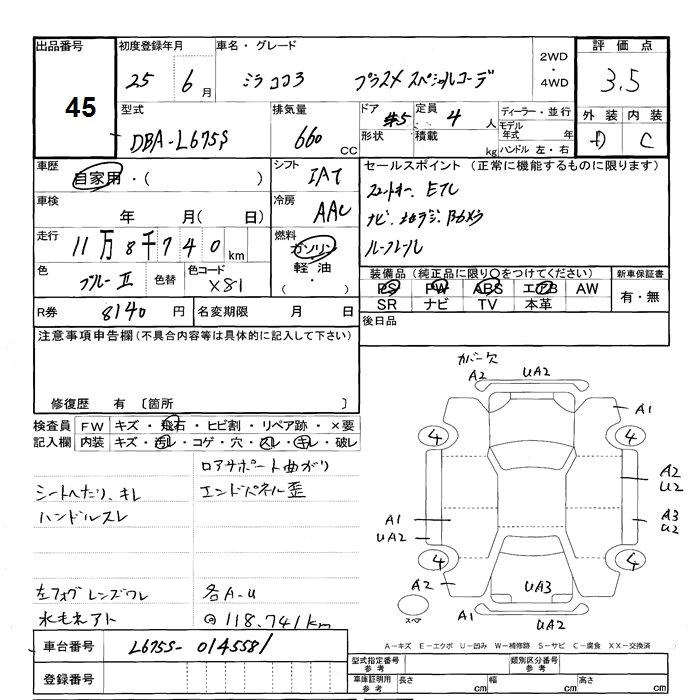 出品番号
45
初度登録年月
25 6 月
車名・グレード
ミラココア プラスX スペシャルコーデ
2WD
・
4WD
評価点
3.5
型式
DBA-L675S
排気量
660 CC
ドア #5
定員 4 人
形状
積載 kg
ディーラー・並行
モデル年式 年
ハンドル 左・右
外装 内装
D C
車歴
自家用・( )
シフト
IAT
車検
年 月( 日)
冷房
AAC
走行
11万8千740 km
燃料
ガソリン
軽油
・
( )
色
ブルーII
色替
色コード
X81
R券 8140 円
名変期限 月 日
セールスポイント (正常に機能するものに限ります)
スマートキー、ETC
ナビ、
ルーフレール
装備品(純正品に限り○をつけてください)
PS PW ABS エアB AW
SR ナビ TV 本革
新車保証書
有・無
後日品
注意事項申告欄(不具合内容等は具体的に記入して下さい)
修復歴 有 〔箇所 〕
検査員
記入欄
FW キズ・飛石・ヒビ割・リペア跡・×要
内装 キズ・汚レ・コゲ・穴・スレ・キレ・破レ
ロアサポート曲がり
シートヘたり、キレ
エンドパネル歪
ハンドルスレ
左フォグレンズワレ
各A-U
水モネアト
@118.741km
カバー欠
A2 UA2
A1
4 4
A2
U2
A1
UA2
A3
U2
4 4
A2
UA3
スペア
A1
UA2
車台番号
L675S-0145581
登録番号
A-キズ E-エクボ U-凹み W-補修跡 S-サビ C-腐食 XX-交換済
型式指定番号
参考
類別区分番号
参考
車庫証明用
参考
長さ cm
幅 cm
高さ cm